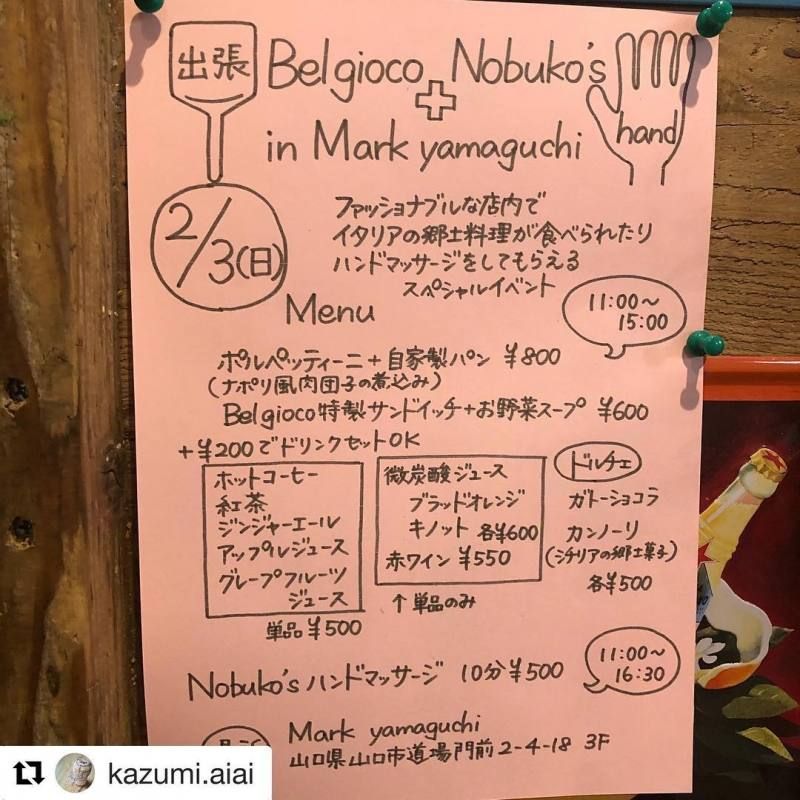 出張 Belgioco + Nobuko's hand
in Mark yamaguchi
2/3(日)
ファッショナブルな店内で
イタリアの郷土料理が食べられたり
ハンドマッサージをしてもらえる
スペシャルイベント
Menu
11:00〜
15:00
ポルペッティーニ+自家製パン ¥800
(ナポリ風肉団子の煮込み)
Belgioco特製サンドイッチ+お野菜スープ ¥600
+¥200でドリンクセットOK
ホットコーヒー
紅茶
ジンジャーエール
アップルジュース
グレープフルーツ
ジュース
単品¥500
微炭酸ジュース
ブラッドオレンジ
キノット 各¥600
赤ワイン ¥550
↑単品のみ
ドルチェ
ガトーショコラ
カンノーリ
(シチリアの郷土菓子)
各¥500
Nobuko'sハンドマッサージ 10分¥500
11:00〜
16:30
Mark yamaguchi
山口県山口市道場門前2-4-18 3F
kazumi.aiai